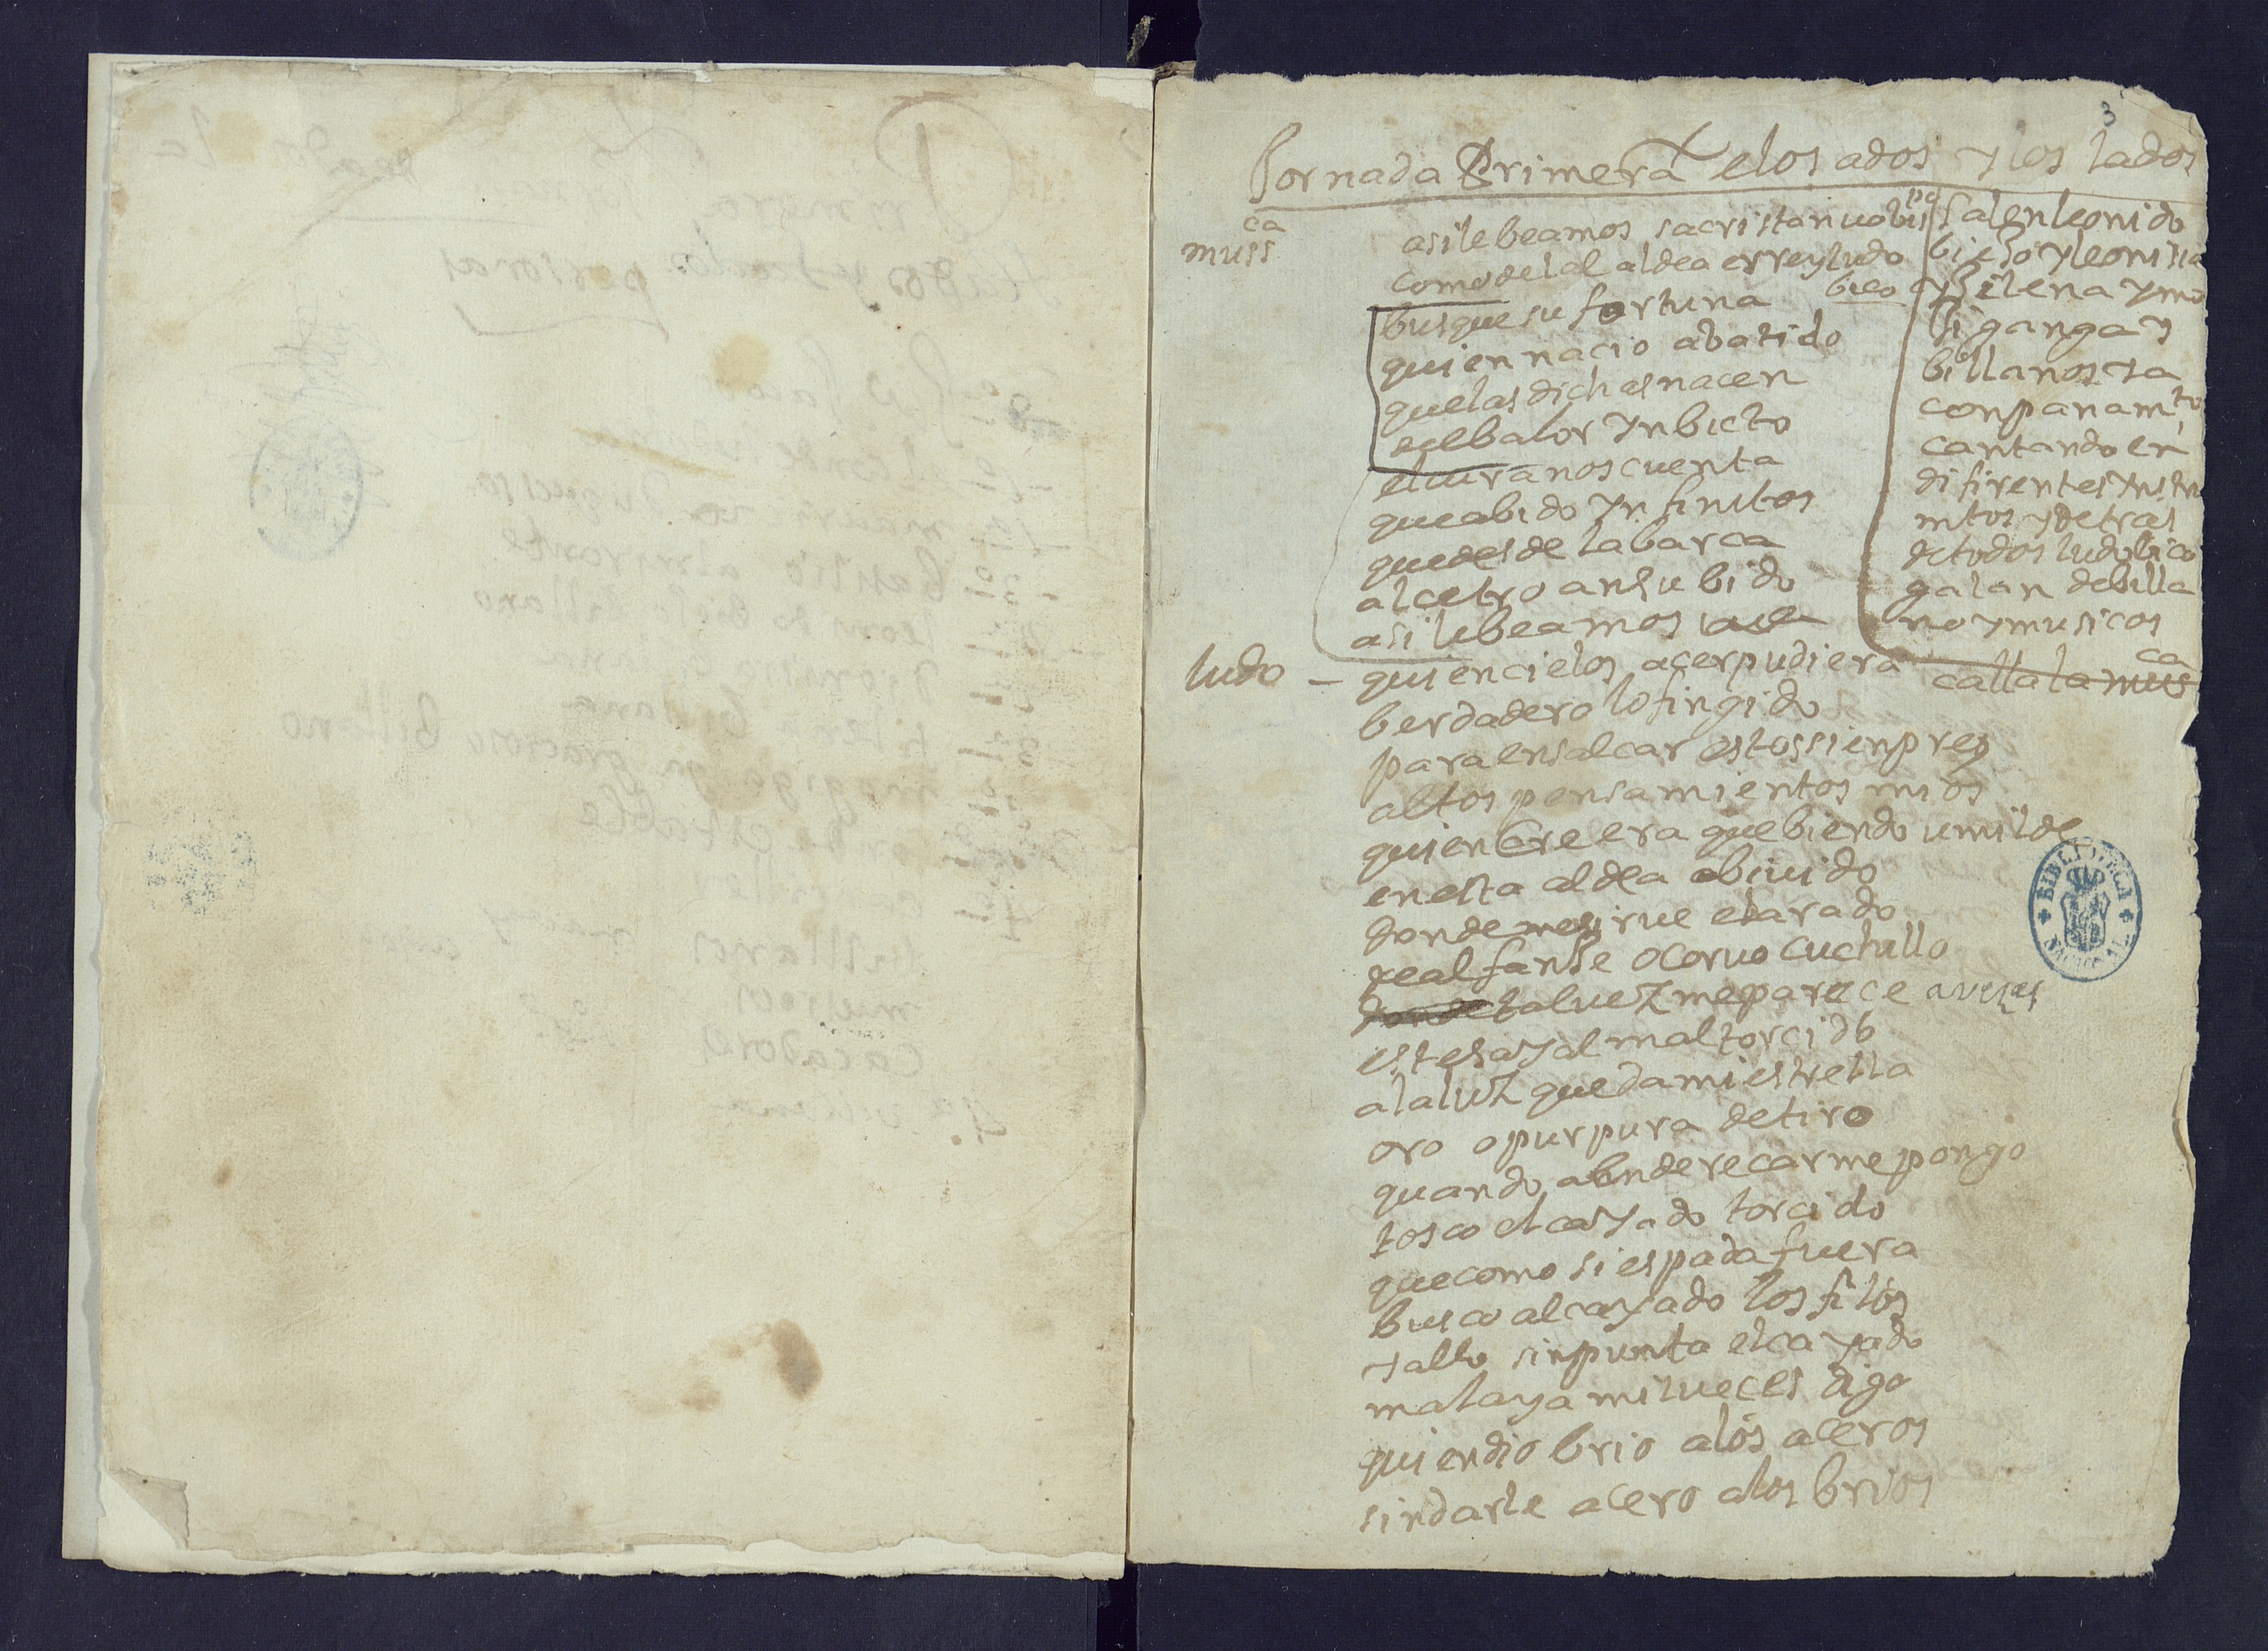 3
Jornada Primera elos ados y los lados
mussca
asi le beamos sacristan uobispo
como del al aldea errey ludo
bico
busque su fortuna
quien nacio abatido
que las dichas nacen
del balor ynbicto
el cura nos cuenta
que abido ynfinitos
que desde la barca
al cetro an subido
asi lebeamos
salen leonido
biejo y leonisia
y silena y mo
jiganga y
billanos y a
conpanamto
cantando en
difirentes ystru
mtos y detras
de todos ludobico
galan de billa
no y musicos
calla la musca
ludo – quien cielos acer pudiera
berdadero lo fingido
para ensalcar estos sienpres
altos pensamientos mios
quien Creera que biendo umilde
en esta aldea abiuido
donde me sirue el arado
de alfanje o coruo cuchillo
donde tal uez me parece aveses
este sayal mal torcido
a la luz que da mi estrella
oro o purpura de tiro
quando a enderecar me pongo
tosco el cayado torcido
que como si espada fuera
busco al cayado los filos
y allo sin punta el cayado
mal aya mil ueces digo
quien dio brio a los aceros
sin darle acero a los brios
BIBLIOTECA NACIONAL